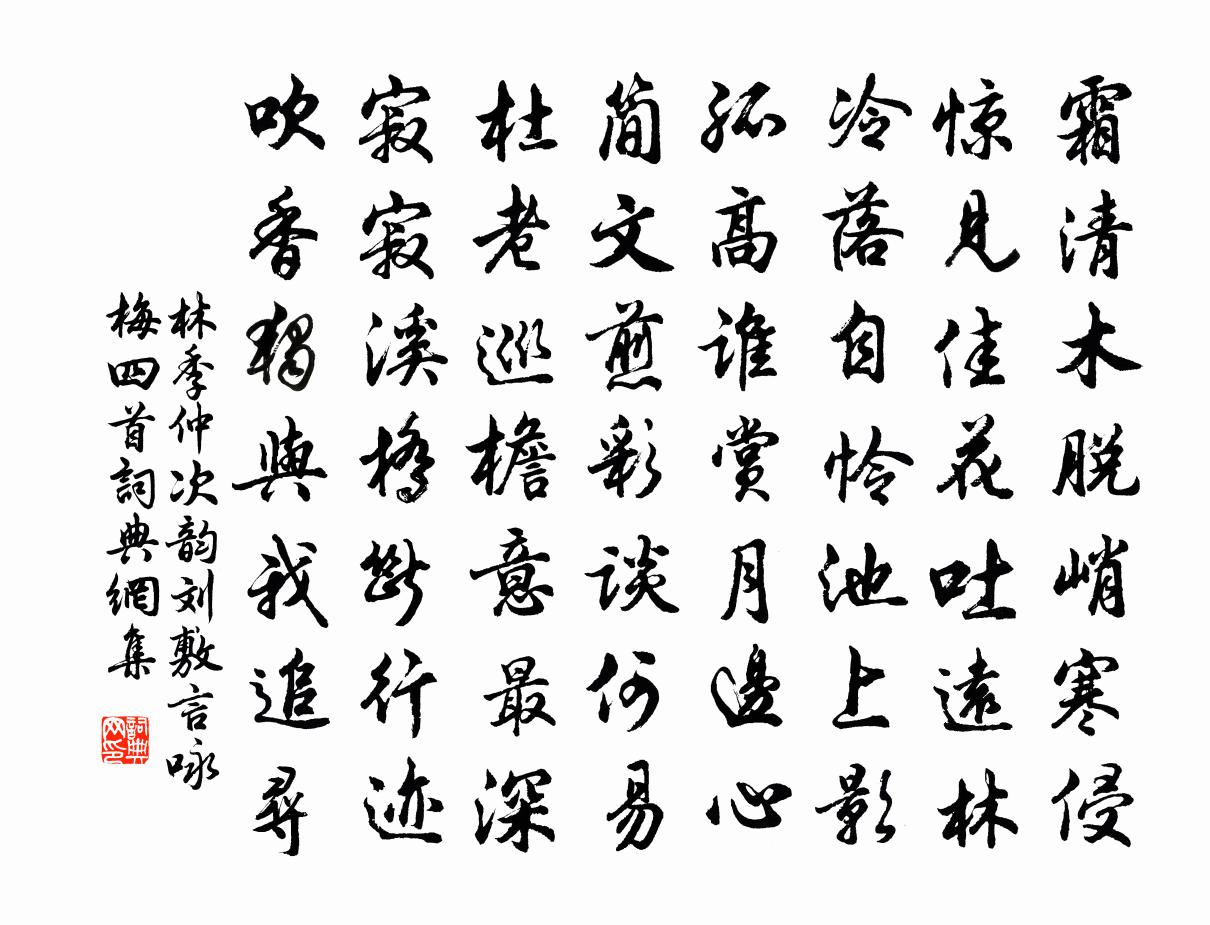 霜清木脱峭寒侵
惊见佳花吐遠林
冷落自怜池上影
孤高谁賞月邊心
简文煎彩谈何易
杜老巡檐意最深
寂寂溪橋斷行迹
吹香獨與我追尋
林季仲次韵刘敷言咏
梅四首詞典網集
詞典网印